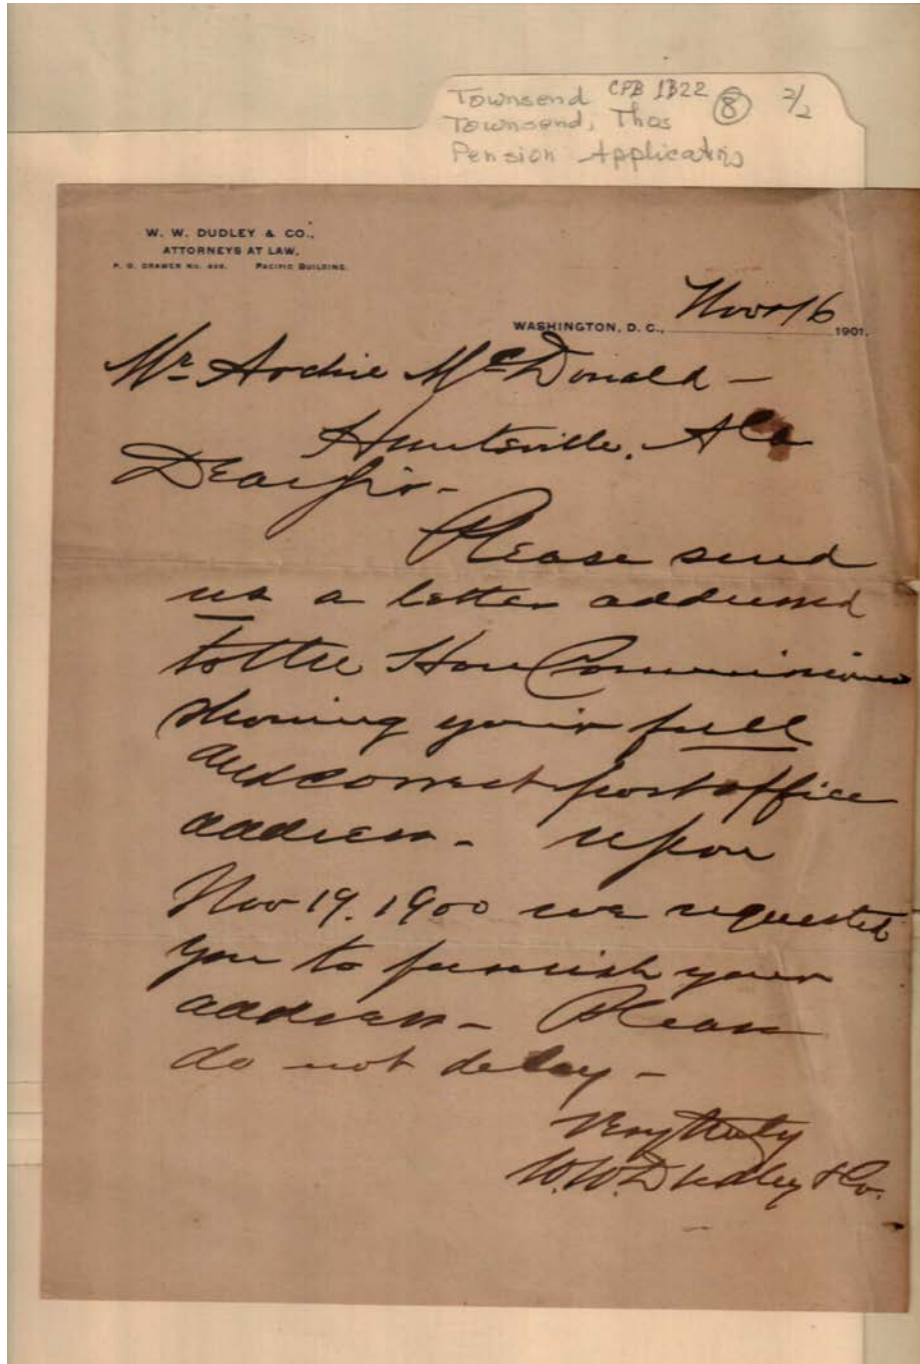 Townsend CPB 1B22 8 2/2
Townsend, Thos
Pension Applications
W. W. DUDLEY & CO.,
ATTORNEYS AT LAW,
P. O. DRAWER NO. PACIFIC BUILDING.
WASHINGTON, D. C., Nov 16 1901.
Mr Archie McDonald —
Huntsville, Ala
Dear Sir -
Please send
us a letter addressed
to the Hon Commissioner
showing your full
and correct post office
address - Upon
Nov 19. 1900 we requested
you to furnish your
address - Please
do not delay -
Very truly
W. W. Dudley & Co.